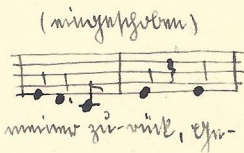 (eingeschoben)
meiner zu-rück, Ge-